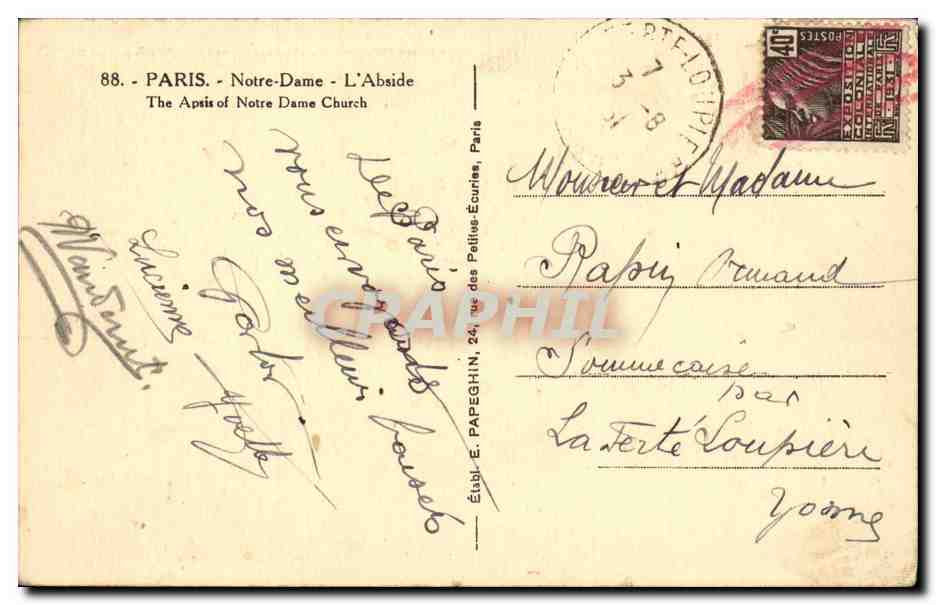 88. - PARIS. - Notre-Dame - L'Abside
The Apsis of Notre Dame Church
Paris
vous
nos meilleurs baisers
Lucienne - Yvette
Établ. E. PAPEGHIN, 24, rue des Petites-Écuries, Paris
FERTE-LOUPIERE
7
3 -8
31
40c
POSTES
EXPOSITION
COLONIALE
INTERNATIONALE
PARIS 1931
Monsieur et Madame
Rapin Armand
Sommecaise
par
La Ferté Loupière
Yonne
CPAPHIL